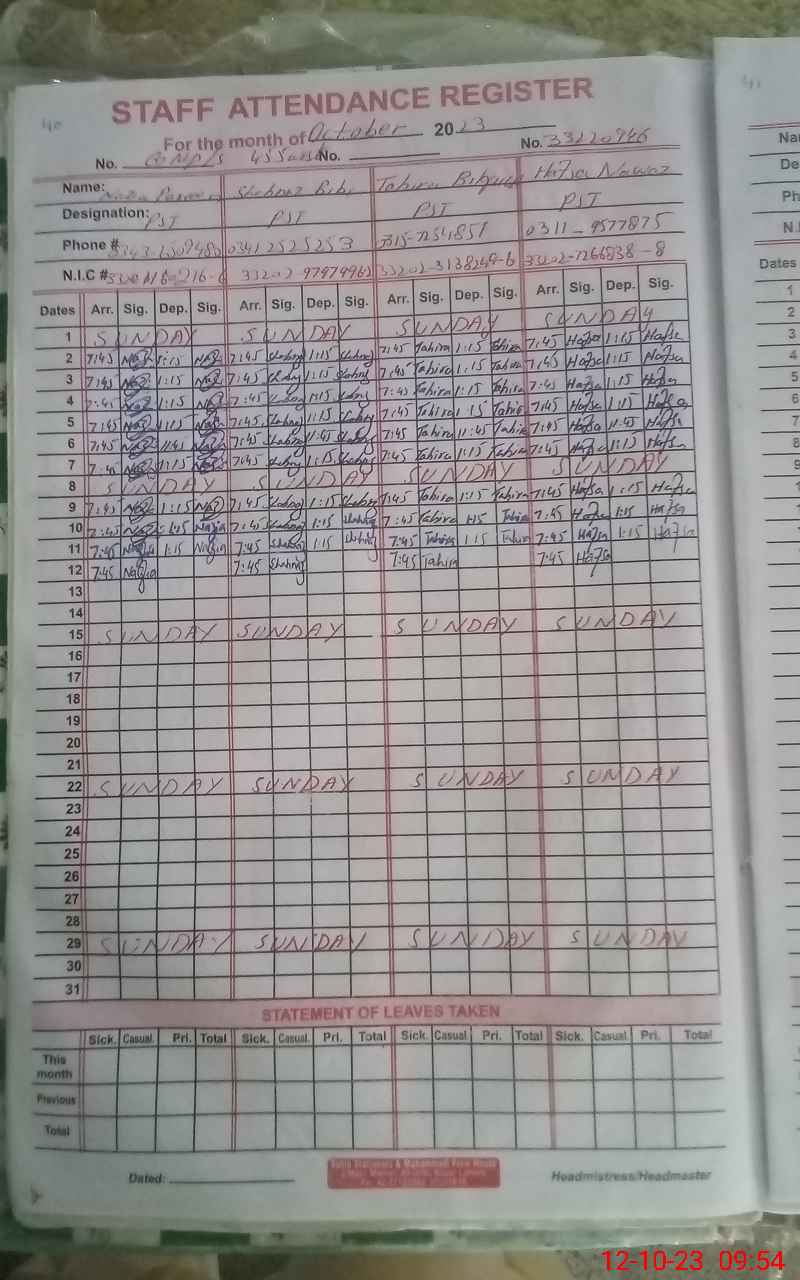 40
STAFF ATTENDANCE REGISTER
For the month of October 2023
No. No. No. 33220946
Name: Shahnaz Bibi Tahira Hafsa Nawaz
Designation: PST PST PST PST
Phone # 0341 2525253 0311-9577875
N.I.C # 33202-3138249-6 33202-7266838-8
Dates Arr. Sig. Dep. Sig. Arr. Sig. Dep. Sig. Arr. Sig. Dep. Sig. Arr. Sig. Dep. Sig.
1 SUNDAY SUNDAY SUNDAY SUNDAY
2 7:45 1:15 7:45 Shahnaz 1:15 Shahnaz 7:45 Tahira 1:15 Tahira 7:45 Hafsa 1:15 Hafsa
3 7:45 1:15 7:45 Shahnaz 1:15 Shahnaz 7:45 Tahira 1:15 Tahira 7:45 Hafsa 1:15 Hafsa
4 7:45 1:15 7:45 Shahnaz 1:15 Shahnaz 7:45 Tahira 1:15 Tahira 7:45 Hafsa 1:15 Hafsa
5 7:45 1:15 7:45 Shahnaz 1:15 Shahnaz 7:45 Tahira 1:15 Tahira 7:45 Hafsa 1:15 Hafsa
6 7:45 11:45 7:45 Shahnaz 11:45 Shahnaz 7:45 Tahira 11:45 Tahira 7:45 Hafsa 11:45 Hafsa
7 7:45 1:15 7:45 Shahnaz 1:15 Shahnaz 7:45 Tahira 1:15 Tahira 7:45 Hafsa 1:15 Hafsa
8 SUNDAY SUNDAY SUNDAY SUNDAY
9 7:45 1:15 7:45 Shahnaz 1:15 Shahnaz 7:45 Tahira 1:15 Tahira 7:45 Hafsa 1:15 Hafsa
10 7:45 1:15 Nazia 7:45 Shahnaz 1:15 Shahnaz 7:45 Tahira 1:15 Tahira 7:45 Hafsa 1:15 Hafsa
11 7:45 Nazia 1:15 Nazia 7:45 Shahnaz 1:15 Shahnaz 7:45 Tahira 1:15 Tahira 7:45 Hafsa 1:15 Hafsa
12 7:45 Nazia 7:45 Shahnaz 7:45 Tahira 7:45 Hafsa
13
14
15 SUNDAY SUNDAY SUNDAY SUNDAY
16
17
18
19
20
21
22 SUNDAY SUNDAY SUNDAY SUNDAY
23
24
25
26
27
28
29 SUNDAY SUNDAY SUNDAY SUNDAY
30
31
STATEMENT OF LEAVES TAKEN
Sick. Casual. Pri. Total Sick. Casual. Pri. Total Sick. Casual. Pri. Total Sick. Casual. Pri. Total
This month
Previous
Total
Dated: Headmistress/Headmaster
41
Na
De
Ph
N.I
Dates
1
2
3
4
5
6
7
8
9
12-10-23 09:54